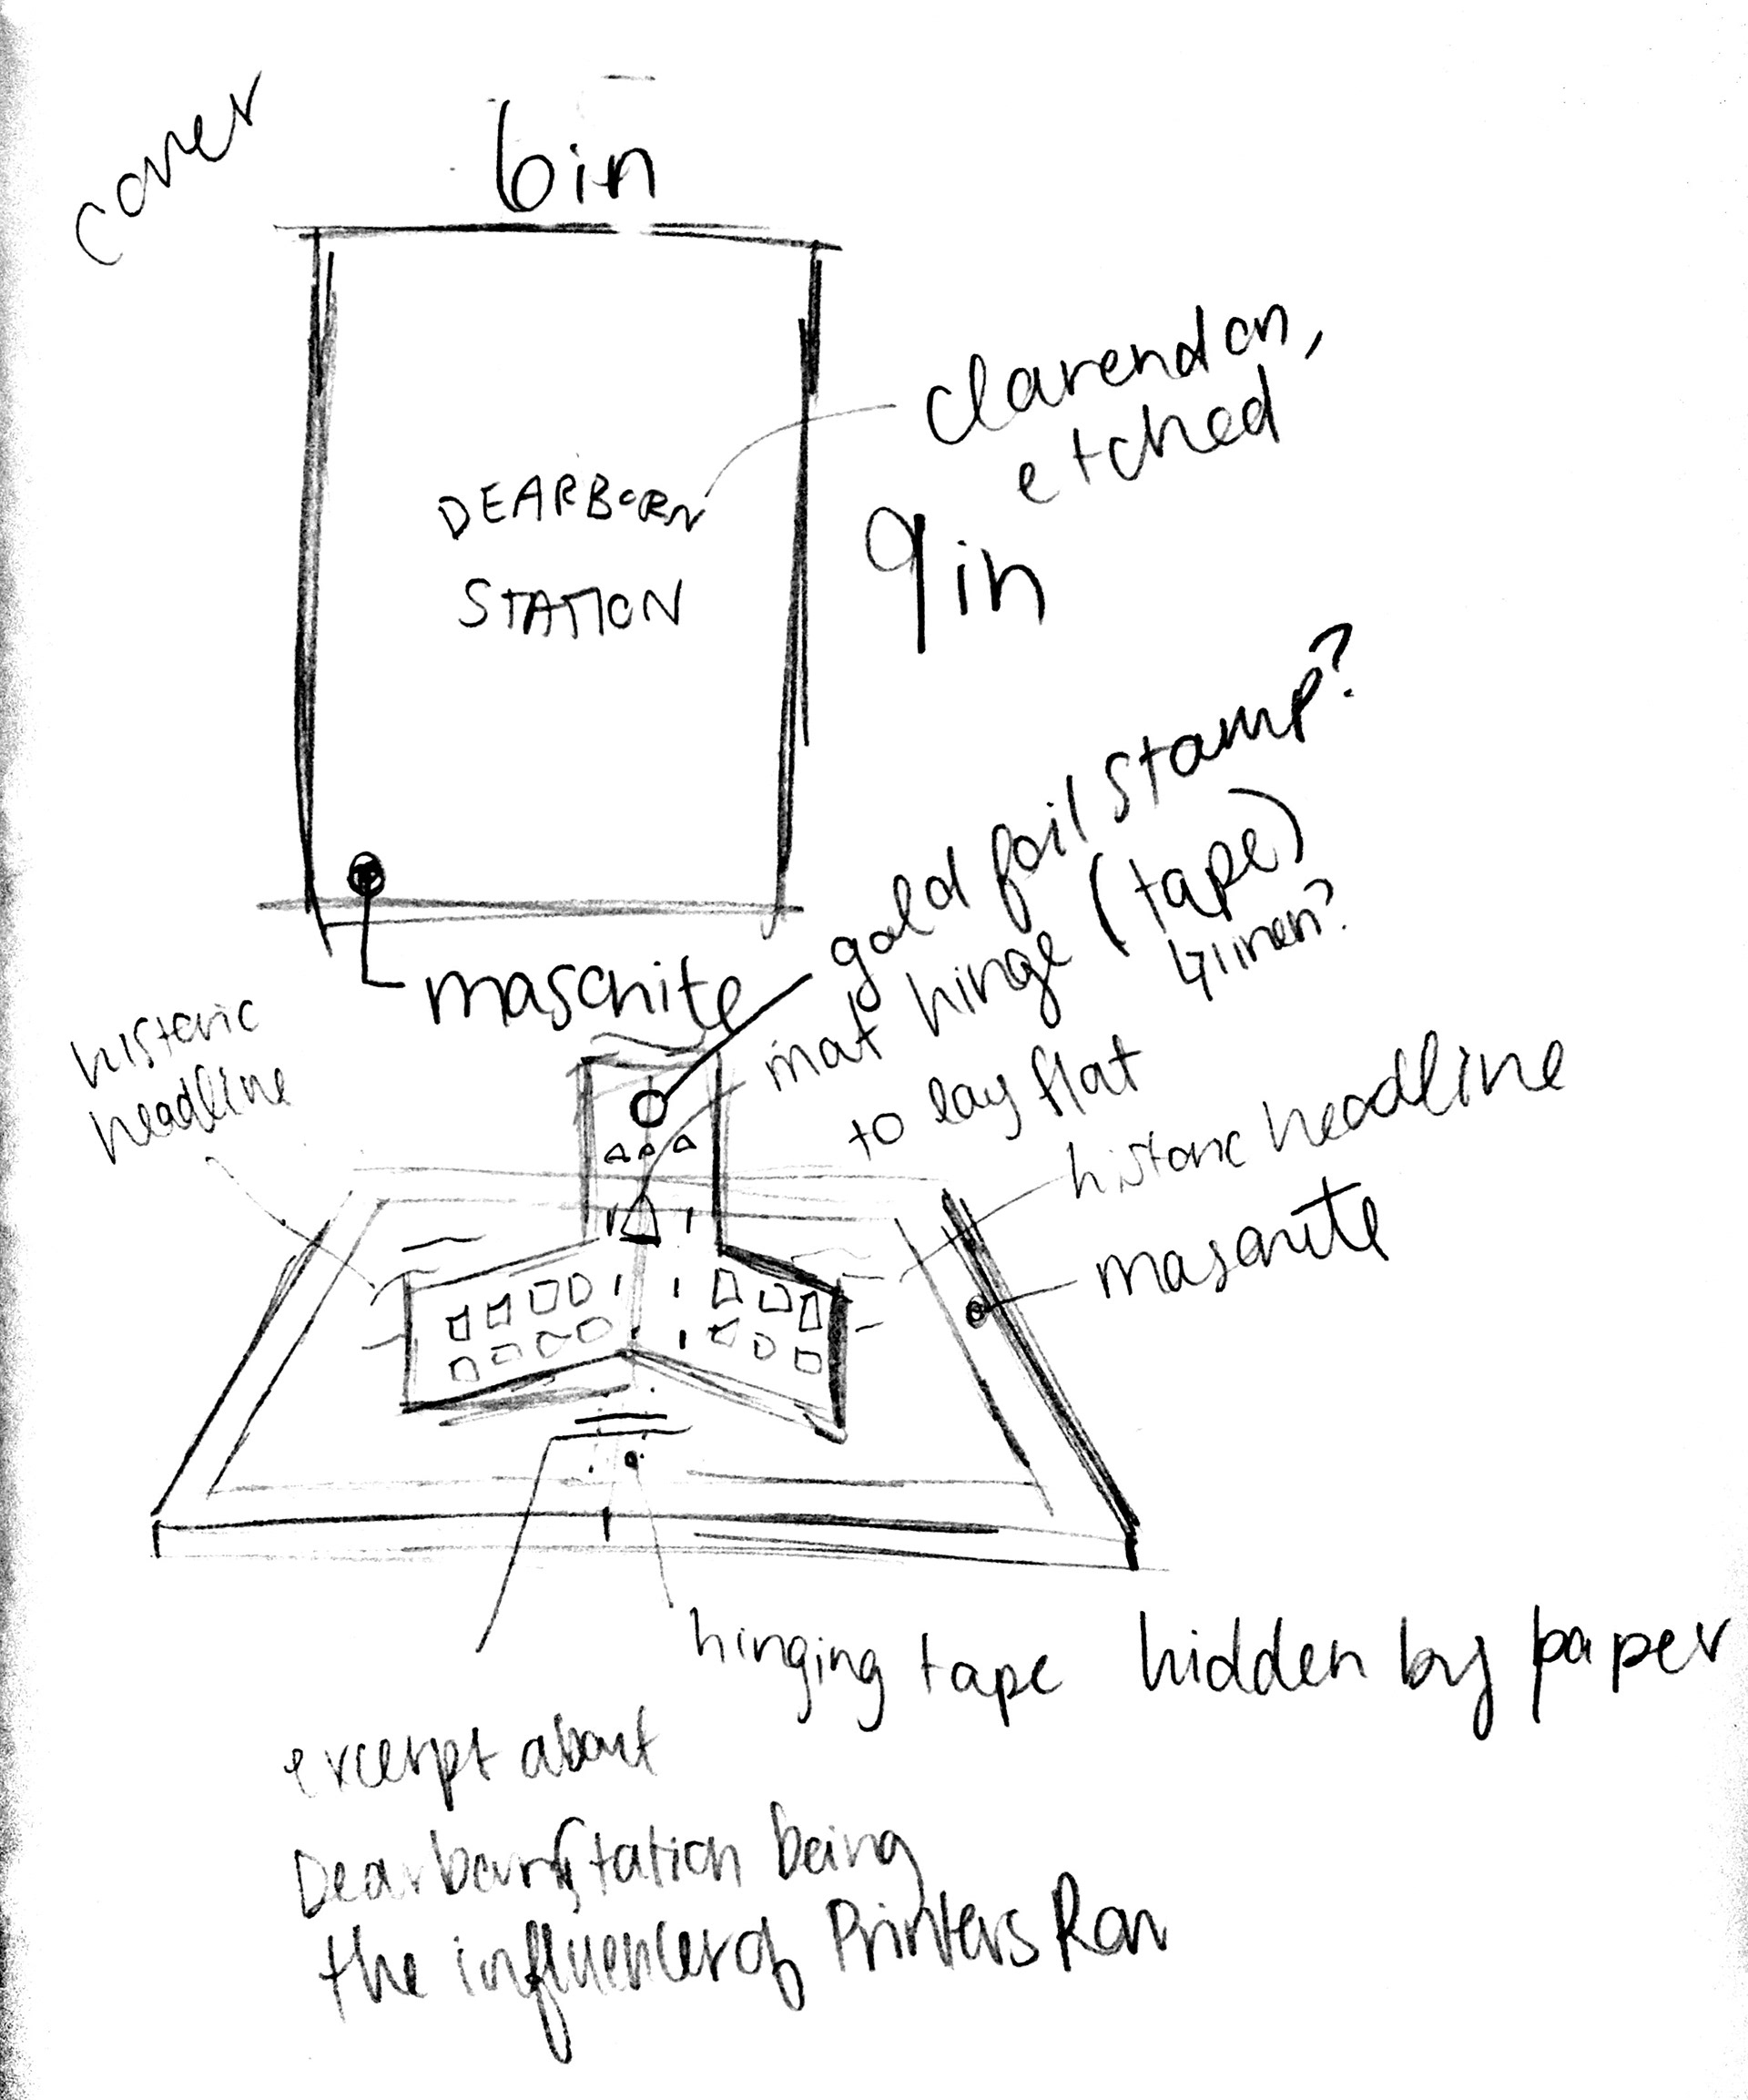 cover
6in
clarendon,
etched
DEARBORN
STATION
9in
masonite
gold foil stamp?
mat hinge (tape)
linen?
to lay flat
historic
headline
historic headline
masonite
hinging tape hidden by paper
excerpt about
Dearborn Station being
the influencer of Printers Row